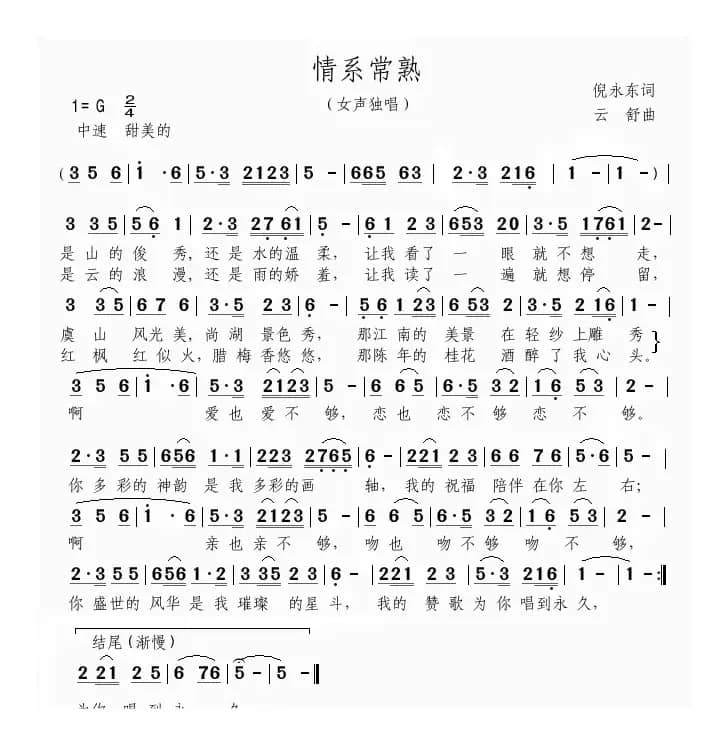 情系常熟
(女声独唱)
倪永东词
云 舒曲
1= G 2/4
中速 甜美的
(3 5 6 | 1 · 6 | 5 · 3 2123 | 5 - | 665 63 | 2 · 3 216 | 1 - | 1 - )|
3 35 | 56 1 | 2 · 3 2761 | 5 - | 61 23 | 653 20 | 3 · 5 1761 | 2 - |
是山的俊 秀,还是水的温 柔, 让我看了一 眼就不想 走,
是云的浪 漫,还是雨的娇 羞, 让我读了一 遍就想停 留,
3 35 | 676 | 3 · 5 23 | 6 - | 56123 | 653 2 | 3 · 5 216 | 5 - |
虞山 风光美,尚湖 景色秀, 那江南的 美景 在轻纱上雕 秀
红枫 红似火,腊梅 香悠悠, 那陈年的 桂花 酒醉了我心 头。
3 5 6 | 1 · 6 | 5 · 3 2123 | 5 - | 6 65 | 6 · 5 32 | 16 53 | 5 - |
啊 爱也爱不 够, 恋也 恋不够恋 不 够。
2 · 3 55 | 656 1 · 1 | 223 2765 | 6 - | 221 23 | 66 76 | 5 · 6 | 5 - |
你多彩的神韵 是我多彩的画 轴, 我的祝福 陪伴在你左 右;
3 5 6 | 1 · 6 | 5 · 3 2123 | 5 - | 66 5 | 6 · 5 32 | 16 53 | 2 - |
啊 亲也亲不 够, 吻也 吻不够 吻 不 够,
2 · 3 55 | 656 1 · 2 | 3 35 23 | 6 - | 221 23 | 5 · 3 216 | 1 - | 1 - :||
你盛世的风华是我璀璨 的星斗, 我的 赞歌为你唱到永久,
结尾(渐慢)
2 21 25 | 6 76 | 5 - | 5 - ||